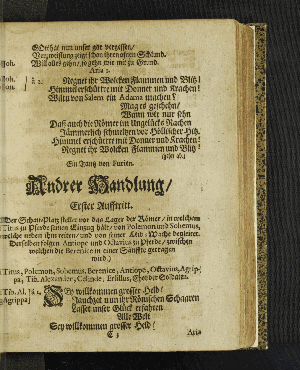 GOtt ists nun unser gar vergessen/
Verzweiflung zeigt schon ihren offnen Schlund.
Will alles gehn/ so gehn wir mit zu Grund.
Aria 2.
à 2. Regnet ihr Wolcken Flammen und Blitz!
Himmel erschüttre mit Donner und Krachen!
Wiltu von Salem ein Adama machen?
Mag es geschehn/
Wann wir nur sehn
Daß auch die Römer im Unglücks Rachen
Jämmerlich schmeltzen vor Höllischer Hitz.
Himmel erschüttre mit Donner und Krachen!
Regnet ihr Wolcken Flammen und Blitz!
(gehn ab.)
Ein Tantz von Furien.
Andrer Handlung/
Erster Aufftritt.
(Der Schau-Platz stellet vor das Lager der Römer/ in welchem
Titus zu Pferde seinen Einzug hält/ von Polemon und Sohemus,
welche neben ihm reiten/ und von seiner Leib-Wache begleitet.
Denselben folgen Antiope und Octavius zu Pferde/ zwischen
welchen die Berenice in einer Sänffte getragen
wird.)
Titus, Polemon, Sohemus, Berenice, Antiope, Octavius, Agrip-
pa, Tib. Alexander, Celinde, Ersillus, Chor der Soldaten.
Tib. Al. à 2. SEy willkommen grosser Held!
Agrippa) Jauchzet nun ihr Römischen Schaaren
Lasset unser Glück erfahren
Alle Welt
Sey willkommen grosser Held!
Aria